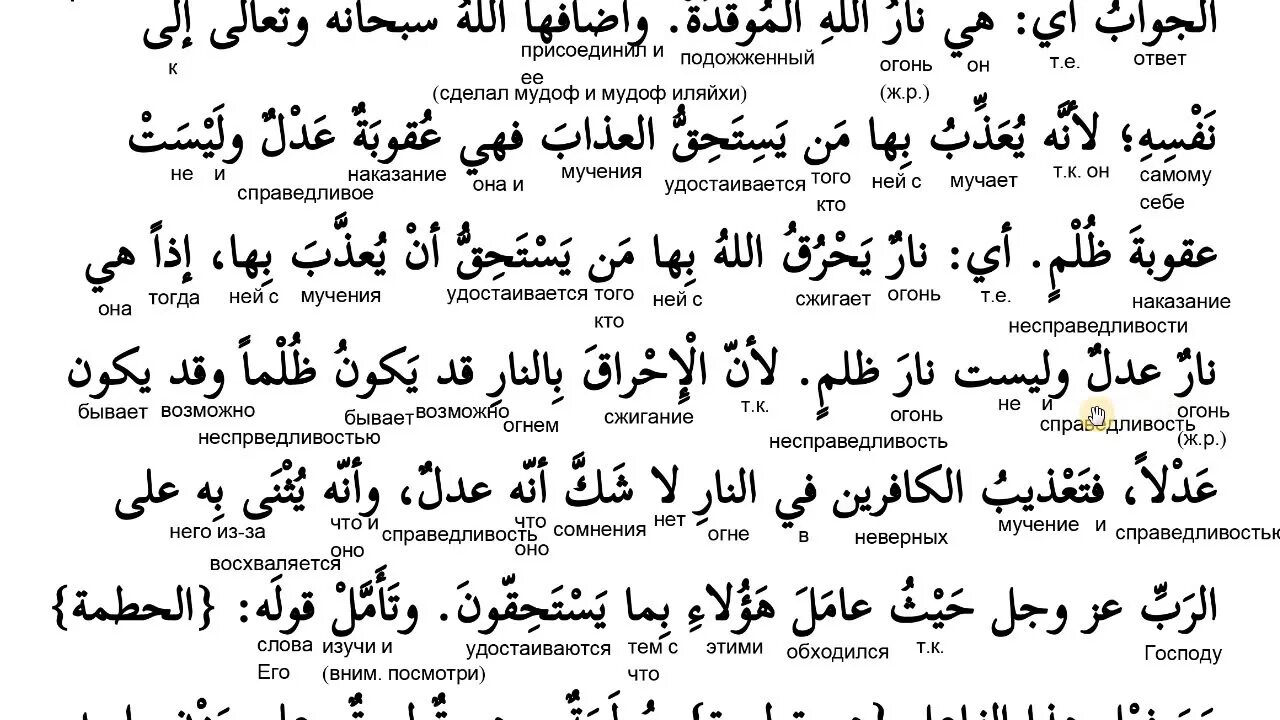 الجوابُ أي: هي نارُ اللهِ المُوقَدَةُ. وأضافَها اللهُ سبحانه وتعالى إلى
к присоединил и ее подожженный огонь он т.е. ответ
(сделал мудоф и мудоф иляйхи) (ж.р.)
نَفْسِهِ؛ لأنَّه يُعَذِّبُ بِها مَن يَسِتَحِقُّ العذابَ فهي عُقوبَةٌ عَدْلٌ ولَيْسَتْ
не и справедливое наказание она и мучения удостаивается того кто ней с мучает т.к. он самому себе
عقوبةَ ظُلْمٍ. أي: نارٌ يَحْرُقُ اللهُ بِها مَن يَسْتَحِقُّ أنْ يُعذَّبَ بِها، إذاً هي
она тогда ней с мучения удостаивается того кто ней с сжигает огонь т.е. несправедливости наказание
نارٌ عدلٌ وليست نارَ ظلمٍ. لأنّ الْإِحْراقَ بِالنارِ قد يَكونُ ظُلْماً وقد يكون
бывает возможно неспрведливостью бывает возможно огнем сжигание т.к. несправедливость огонь не и справедливость огонь (ж.р.)
عَدْلاً، فتَعْذيبُ الكافرين في النارِ لا شَكَّ أنّه عدلٌ، وأنّه يُثْنَى بِه على
него из-за восхваляется что и оно справедливость что оно сомнения нет огне в неверных мучение и справедливостью
الرَبِّ عز وجل حَيْثُ عامَلَ هَؤُلاءِ بِما يَسْتَحِقّونَ. وتَأَمَّلْ قولَه: {الحطمة}
слова Его изучи и (вним. посмотри) удостаиваются тем с что этими обходился т.к. Господу